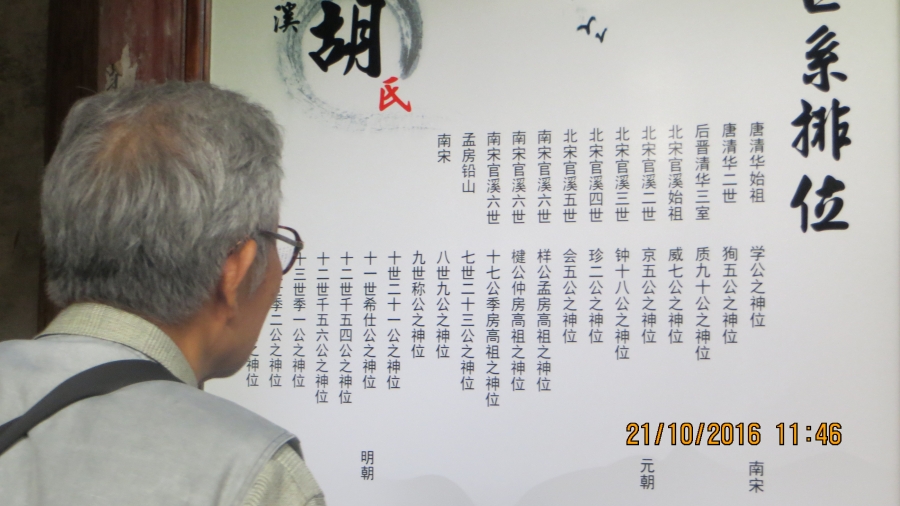 系排位
溪
胡
氏
唐清华始祖
唐清华二世
后晋清华三室
北宋官溪始祖
北宋官溪二世
北宋官溪三世
北宋官溪四世
北宋官溪五世
南宋官溪六世
南宋官溪六世
南宋官溪六世
孟房铅山
南宋
学公之神位
狥五公之神位
质九十公之神位
威七公之神位
京五公之神位
钟十八公之神位
珍二公之神位
会五公之神位
样公孟房高祖之神位
楗公仲房高祖之神位
十七公季房高祖之神位
七世二十三公之神位
八世九公之神位
九世称公之神位
十世二十一公之神位
十一世希仕公之神位
十二世千五四公之神位
十二世千五六公之神位
十三世季一公之神位
季二公之神位
之神位
南宋
元朝
明朝
21/10/2016 11:46